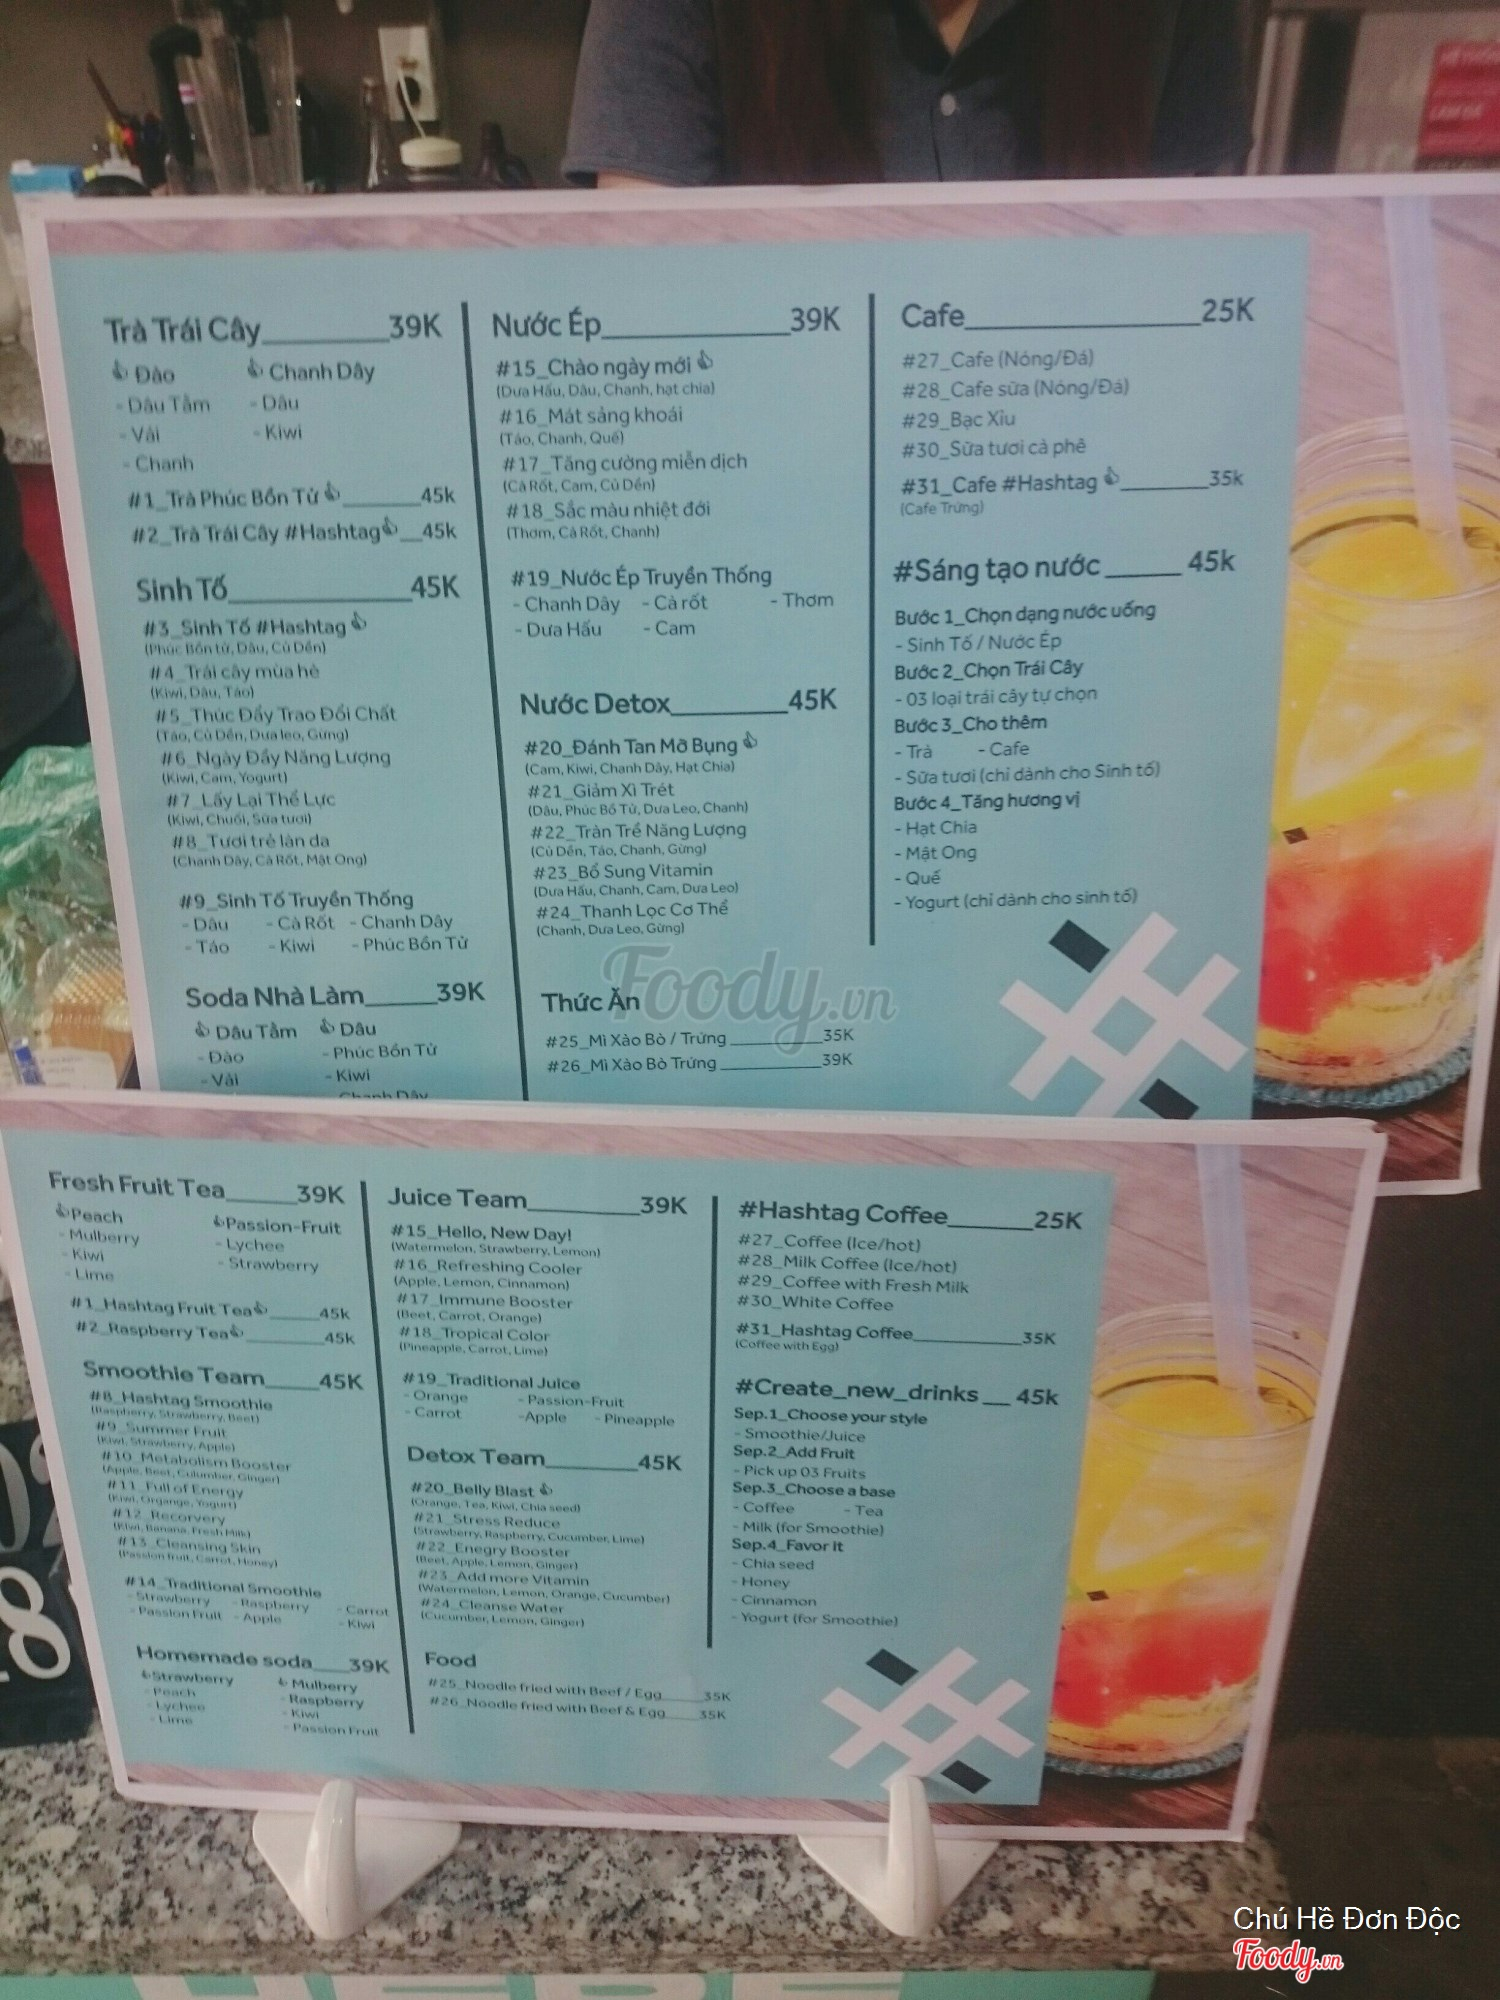 Trà Trái Cây 39K
Đào Chanh Dây
- Dâu Tằm - Dâu
- Vải - Kiwi
- Chanh
#1_Trà Phúc Bồn Tử 45k
#2_Trà Trái Cây #Hashtag 45k
Sinh Tố 45K
#3_Sinh Tố #Hashtag
(Phúc Bồn tử, Dâu, Củ Dền)
#4_Trái cây mùa hè
(Kiwi, Dâu, Táo)
#5_Thúc Đẩy Trao Đổi Chất
(Táo, Củ Dền, Dưa leo, Gừng)
#6_Ngày Đầy Năng Lượng
(Kiwi, Cam, Yogurt)
#7_Lấy Lại Thể Lực
(Kiwi, Chuối, Sữa tươi)
#8_Tươi trẻ làn da
(Chanh Dây, Cà Rốt, Mật Ong)
#9_Sinh Tố Truyền Thống
- Dâu - Cà Rốt - Chanh Dây
- Táo - Kiwi - Phúc Bồn Tử
Soda Nhà Làm 39K
Dâu Tằm Dâu
- Đào - Phúc Bồn Tử
- Vải - Kiwi
- Chanh Dây
Nước Ép 39K
#15_Chào ngày mới
(Dưa Hấu, Dâu, Chanh, hạt chia)
#16_Mát sảng khoái
(Táo, Chanh, Quế)
#17_Tăng cường miễn dịch
(Cà Rốt, Cam, Củ Dền)
#18_Sắc màu nhiệt đới
(Thơm, Cà Rốt, Chanh)
#19_Nước Ép Truyền Thống
- Chanh Dây - Cà rốt - Thơm
- Dưa Hấu - Cam
Nước Detox 45K
#20_Đánh Tan Mỡ Bụng
(Cam, Kiwi, Chanh Dây, Hạt Chia)
#21_Giảm Xì Trét
(Dâu, Phúc Bồ Tử, Dưa Leo, Chanh)
#22_Tràn Trề Năng Lượng
(Củ Dền, Táo, Chanh, Gừng)
#23_Bổ Sung Vitamin
(Dưa Hấu, Chanh, Cam, Dưa Leo)
#24_Thanh Lọc Cơ Thể
(Chanh, Dưa Leo, Gừng)
Thức Ăn
#25_Mì Xào Bò / Trứng 35K
#26_Mì Xào Bò Trứng 39K
Cafe 25K
#27_Cafe (Nóng/Đá)
#28_Cafe sữa (Nóng/Đá)
#29_Bạc Xỉu
#30_Sữa tươi cà phê
#31_Cafe #Hashtag 35k
(Cafe Trứng)
#Sáng tạo nước 45k
Bước 1_Chọn dạng nước uống
- Sinh Tố / Nước Ép
Bước 2_Chọn Trái Cây
- 03 loại trái cây tự chọn
Bước 3_Cho thêm
- Trà - Cafe
- Sữa tươi (chỉ dành cho Sinh tố)
Bước 4_Tăng hương vị
- Hạt Chia
- Mật Ong
- Quế
- Yogurt (chỉ dành cho sinh tố)
Foody.vn
Fresh Fruit Tea 39K
Peach Passion-Fruit
- Mulberry - Lychee
- Kiwi - Strawberry
- Lime
#1_Hashtag Fruit Tea 45k
#2_Raspberry Tea 45k
Smoothie Team 45K
#8_Hashtag Smoothie
(Raspberry, Strawberry, Beet)
#9_Summer Fruit
(Kiwi, Strawberry, Apple)
#10_Metabolism Booster
(Apple, Beet, Culumber, Ginger)
#11_Full of Energy
(Kiwi, Organge, Yogurt)
#12_Recorvery
(Kiwi, Banana, Fresh Milk)
#13_Cleansing Skin
(Passion fruit, Carrot, Honey)
#14_Traditional Smoothie
- Strawberry - Raspberry - Carrot
- Passion Fruit - Apple - Kiwi
Homemade soda 39K
Strawberry Mulberry
- Peach - Raspberry
- Lychee - Kiwi
- Lime - Passion Fruit
Juice Team 39K
#15_Hello, New Day!
(Watermelon, Strawberry, Lemon)
#16_Refreshing Cooler
(Apple, Lemon, Cinnamon)
#17_Immune Booster
(Beet, Carrot, Orange)
#18_Tropical Color
(Pineapple, Carrot, Lime)
#19_Traditional Juice
- Orange - Passion-Fruit
- Carrot -Apple - Pineapple
Detox Team 45K
#20_Belly Blast
(Orange, Tea, Kiwi, Chia seed)
#21_Stress Reduce
(Strawberry, Raspberry, Cucumber, Lime)
#22_Enegry Booster
(Beet, Apple, Lemon, Ginger)
#23_Add more Vitamin
(Watermelon, Lemon, Orange, Cucumber)
#24_Cleanse Water
(Cucumber, Lemon, Ginger)
Food
#25_Noodle fried with Beef / Egg 35K
#26_Noodle fried with Beef & Egg 35K
#Hashtag Coffee 25K
#27_Coffee (Ice/hot)
#28_Milk Coffee (Ice/hot)
#29_Coffee with Fresh Milk
#30_White Coffee
#31_Hashtag Coffee 35K
(Coffee with Egg)
#Create_new_drinks 45k
Sep.1_Choose your style
- Smoothie/Juice
Sep.2_Add Fruit
- Pick up 03 Fruits
Sep.3_Choose a base
- Coffee - Tea
- Milk (for Smoothie)
Sep.4_Favor it
- Chia seed
- Honey
- Cinnamon
- Yogurt (for Smoothie)
Chú Hề Đơn Độc
Foody.vn